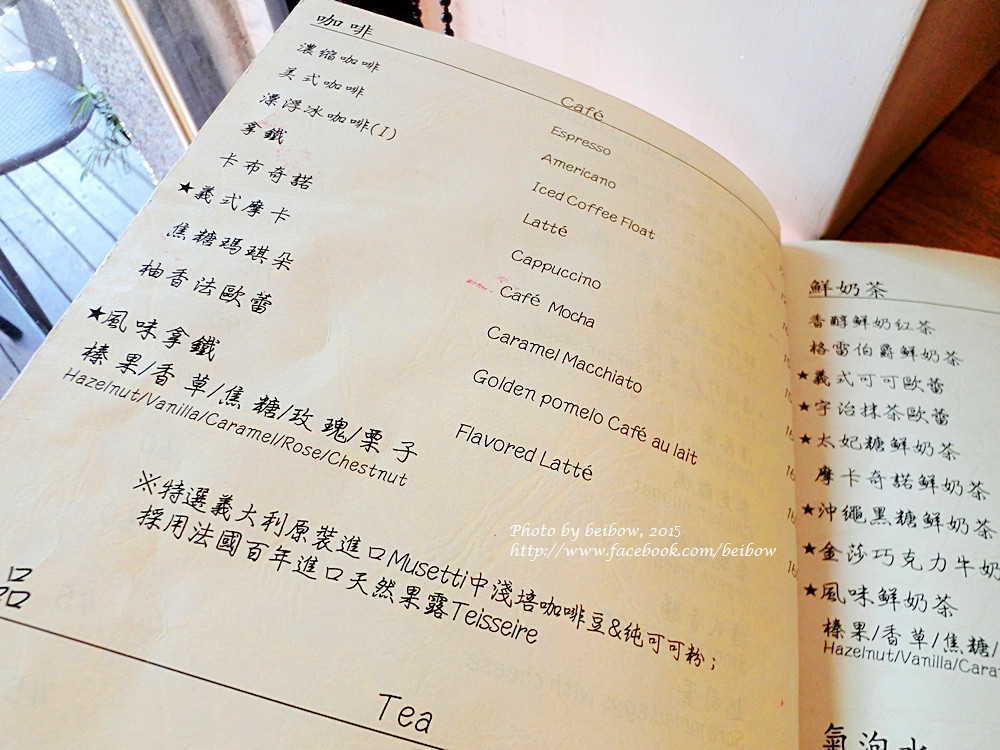 咖啡 Café
濃縮咖啡 Espresso
美式咖啡 Americano
漂浮冰咖啡(I) Iced Coffee Float
拿鐵 Latté
卡布奇諾 Cappuccino
★義式摩卡 Café Mocha
焦糖瑪琪朵 Caramel Macchiato
柚香法歐蕾 Golden pomelo Café au lait
★風味拿鐵 Flavored Latté
榛果/香草/焦糖/玫瑰/栗子
Hazelnut/Vanilla/Caramel/Rose/Chestnut
※特選義大利原裝進口Musetti中淺培咖啡豆&純可可粉;
採用法國百年進口天然果露Teisseire
品 Tea
鮮奶茶
香醇鮮奶紅茶
格雷伯爵鮮奶茶
★義式可可歐蕾
★宇治抹茶歐蕾
★太妃糖鮮奶茶
摩卡奇諾鮮奶茶
★沖繩黑糖鮮奶茶
★金莎巧克力牛奶
★風味鮮奶茶
榛果/香草/焦糖/
Hazelnut/Vanilla/Cara
氣泡水
Photo by beibow, 2015
http://www.facebook.com/beibow